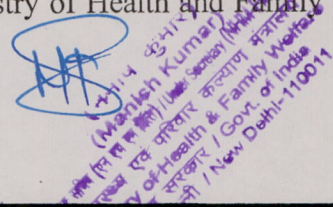 stry of Health and Family
मनीष कुमार
(Manish Kumar)
/ Under Secretary
स्वास्थ्य एवं परिवार कल्याण मंत्रालय
y of Health & Family Welfare
सरकार / Govt. of India
/ New Delhi-110011